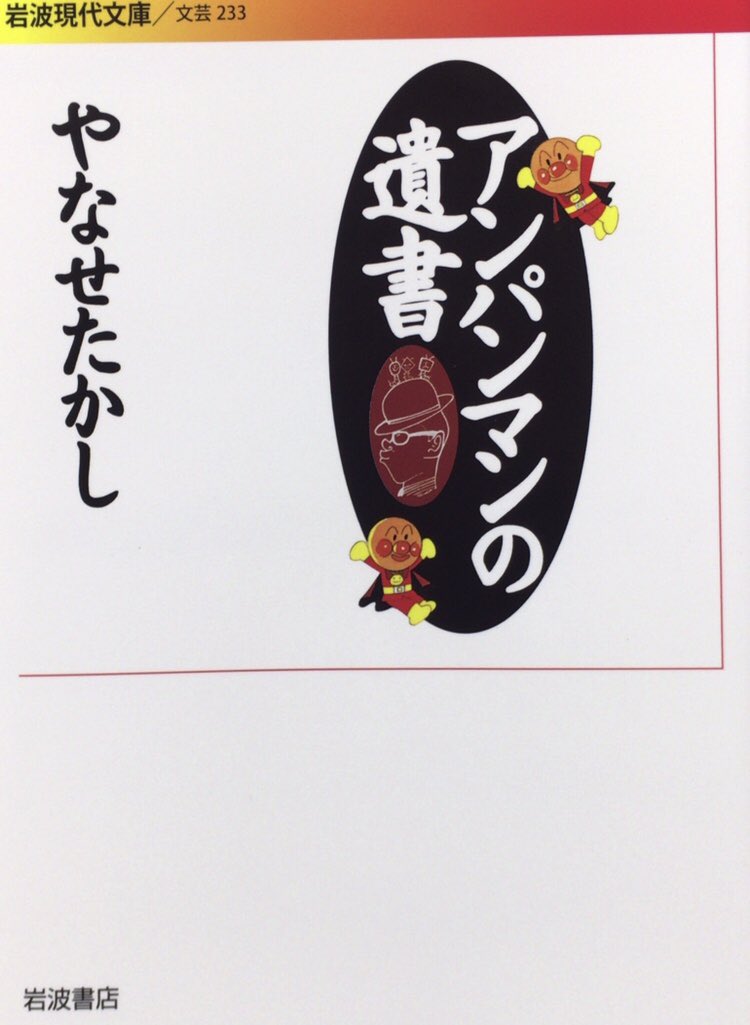 岩波現代文庫／文芸 233
アンパンマンの
遺書
やなせたかし
岩波書店